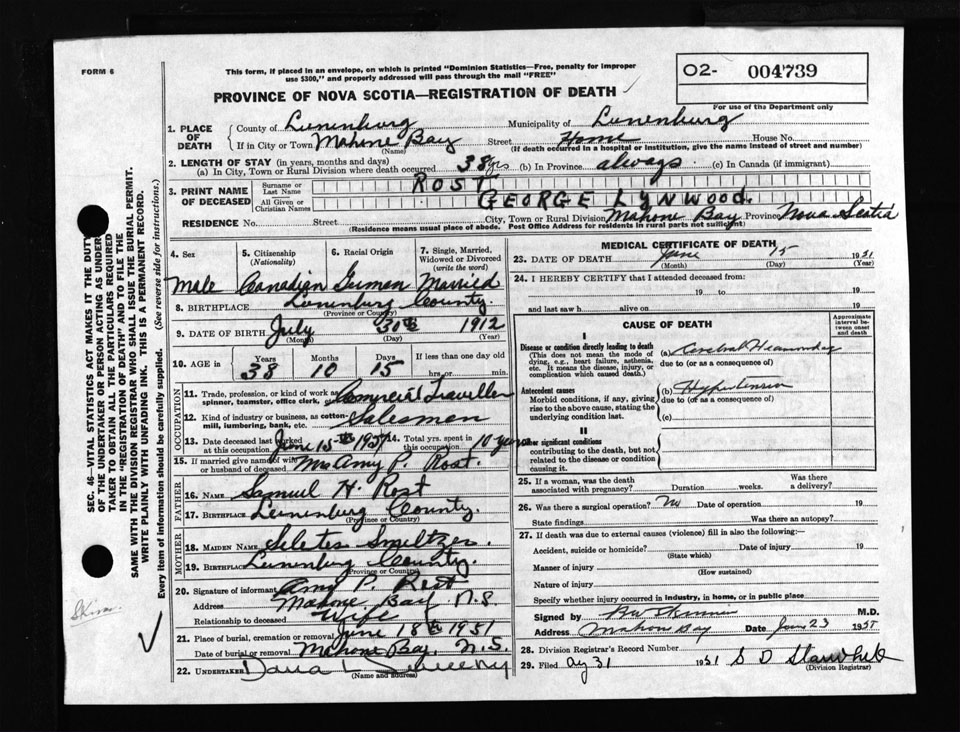 FORM 6
This form, if placed in an envelope, on which is printed "Dominion Statistics—Free, penalty for improper
use $300," and properly addressed will pass through the mail "FREE"
O2- 004739
For use of the Department only
PROVINCE OF NOVA SCOTIA—REGISTRATION OF DEATH
1. PLACE OF DEATH
County of Lunenburg Municipality of Lunenburg
If in City or Town Mahone Bay Street Home House No.
(Name) (If death occurred in a hospital or institution, give the name instead of street and number)
2. LENGTH OF STAY (in years, months and days)
(a) In City, Town or Rural Division where death occurred 38 yrs (b) In Province always (c) In Canada (if immigrant)
3. PRINT NAME OF DECEASED
Surname or Last Name ROST
All Given or Christian Names GEORGE LYNWOOD.
RESIDENCE No. Street City, Town or Rural Division Mahone Bay Province Nova Scotia
(Residence means usual place of abode. Post Office Address for residents in rural parts not sufficient)
4. Sex 5. Citizenship (Nationality) 6. Racial Origin 7. Single, Married, Widowed or Divorced (write the word)
Male Canadian German Married
8. BIRTHPLACE Lunenburg County.
(Province or Country)
9. DATE OF BIRTH July 30th 1912
(Month) (Day) (Year)
10. AGE in Years Months Days If less than one day old
38 10 15 hrs. or min.
OCCUPATION
11. Trade, profession, or kind of work as spinner, teamster, office clerk, Traveller
12. Kind of industry or business, as cotton-mill, lumbering, bank, etc. Salesman
13. Date deceased last worked at this occupation June 15th 1951 14. Total yrs. spent in this occupation 10 years
15. If married give name of wife or husband of deceased Mrs Amy P. Rost.
FATHER
16. Name Samuel H. Rost
17. Birthplace Lunenburg County.
(Province or Country)
MOTHER
18. Maiden Name Smeltzer.
19. Birthplace Lunenburg County.
(Province or Country)
20. Signature of informant Amy P. Rost
Address Mahone Bay N.S.
Relationship to deceased Wife
21. Place of burial, cremation or removal June 18th 1951
Date of burial or removal Mahone Bay, N.S.
22. UNDERTAKER Dana L Sweeny
(Name and address)
MEDICAL CERTIFICATE OF DEATH
23. DATE OF DEATH June 15 1951
(Month) (Day) (Year)
24. I HEREBY CERTIFY that I attended deceased from:
19 to 19
and last saw h alive on 19
CAUSE OF DEATH
Approximate interval between onset and death
I
Disease or condition directly leading to death
(This does not mean the mode of dying, e.g., heart failure, asthenia, etc. It means the disease, injury, or complication which caused death.)
(a) Cerebral Hemorrhage
due to (or as a consequence of)
Antecedent causes
Morbid conditions, if any, giving rise to the above cause, stating the underlying condition last.
(b) Hypertension
due to (or as a consequence of)
(c)
II
Other significant conditions
contributing to the death, but not related to the disease or condition causing it.
25. If a woman, was the death associated with pregnancy? Duration weeks. Was there a delivery?
26. Was there a surgical operation? No Date of operation 19
State findings Was there an autopsy?
27. If death was due to external causes (violence) fill in also the following:—
Accident, suicide or homicide? Date of injury 19
(State which)
Manner of injury
(How sustained)
Nature of injury
Specify whether injury occurred in industry, in home, or in public place
Signed by M.D.
Address Mahone Bay Date June 23 1951
28. Division Registrar's Record Number
29. Filed 31 1951 S D
(Division Registrar)
SEC. 46—VITAL STATISTICS ACT MAKES IT THE DUTY
OF THE UNDERTAKER OR PERSON ACTING AS UNDER-
TAKER TO OBTAIN ALL THE PARTICULARS REQUIRED
IN THE "REGISTRATION OF DEATH" AND TO FILE THE
SAME WITH THE DIVISION REGISTRAR WHO SHALL ISSUE THE BURIAL PERMIT.
WRITE PLAINLY WITH UNFADING INK. THIS IS A PERMANENT RECORD.
Every item of information should be carefully supplied. (See reverse side for instructions.)